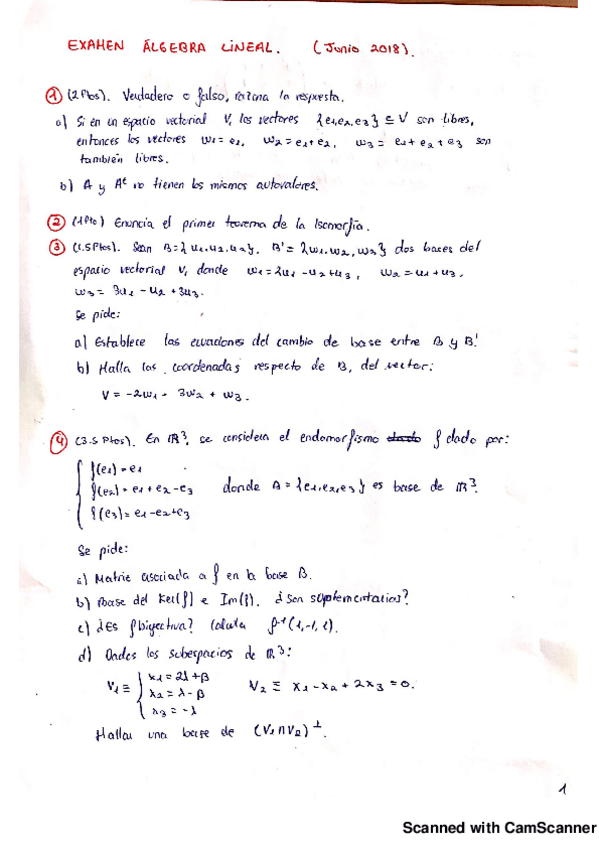 EXAMEN ÁLGEBRA LINEAL. (Junio 2018).
① (2 Ptos). Verdadero o falso, razona la respuesta.
a) Si en un espacio vectorial V, los vectores {e1, e2, e3} ⊆ V son libres,
entonces los vectores w1 = e1, w2 = e1+e2, w3 = e1+e2+e3 son
también libres.
b) A y Aᵗ no tienen los mismos autovalores.
② (1 Pto) Enuncia el primer teorema de la Isomorfía.
③ (1.5 Ptos). Sean B={u1, u2, u3}, B'={w1, w2, w3} dos bases del
espacio vectorial V, donde w1=2u1-u2+u3, w2=u1+u3,
w3= 3u1-u2+3u3.
Se pide:
a) Establece las ecuaciones del cambio de base entre B y B'.
b) Halla las coordenadas respecto de B, del vector:
V = -2w1 - 3w2 + w3.
④ (3.5 Ptos). En ℝ³, se considera el endomorfismo f dado por:
f(e1) = e1
f(e2) = e1+e2-e3 donde B={e1, e2, e3} es base de ℝ³.
f(e3) = e1-e2+e3
Se pide:
a) Matriz asociada a f en la base B.
b) Base del Ker(f) e Im(f). ¿Son suplementarios?
c) ¿Es f biyectiva? Calcula f⁻¹(1,-1,1).
d) Dados los subespacios de ℝ³:
V1 ≡ { x1=2λ+β
x2=λ-β V2 ≡ x1-x2+2x3=0.
x3=-λ
Hallar una base de (V1∩V2)⊥.
1
Scanned with CamScanner